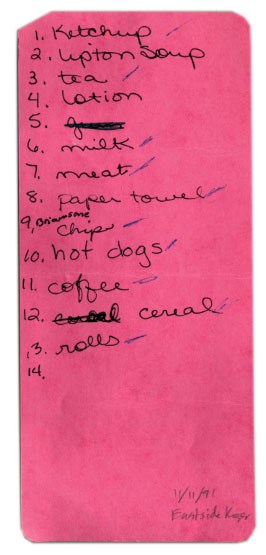 1. Ketchup
2. Lipton Soup
3. tea
4. Lotion
5.
6. milk
7. meat
8. paper towel
9.
chips
10. hot dogs
11. coffee
12. cereal
13. rolls
14.
11/11/91
Eastside Kroger